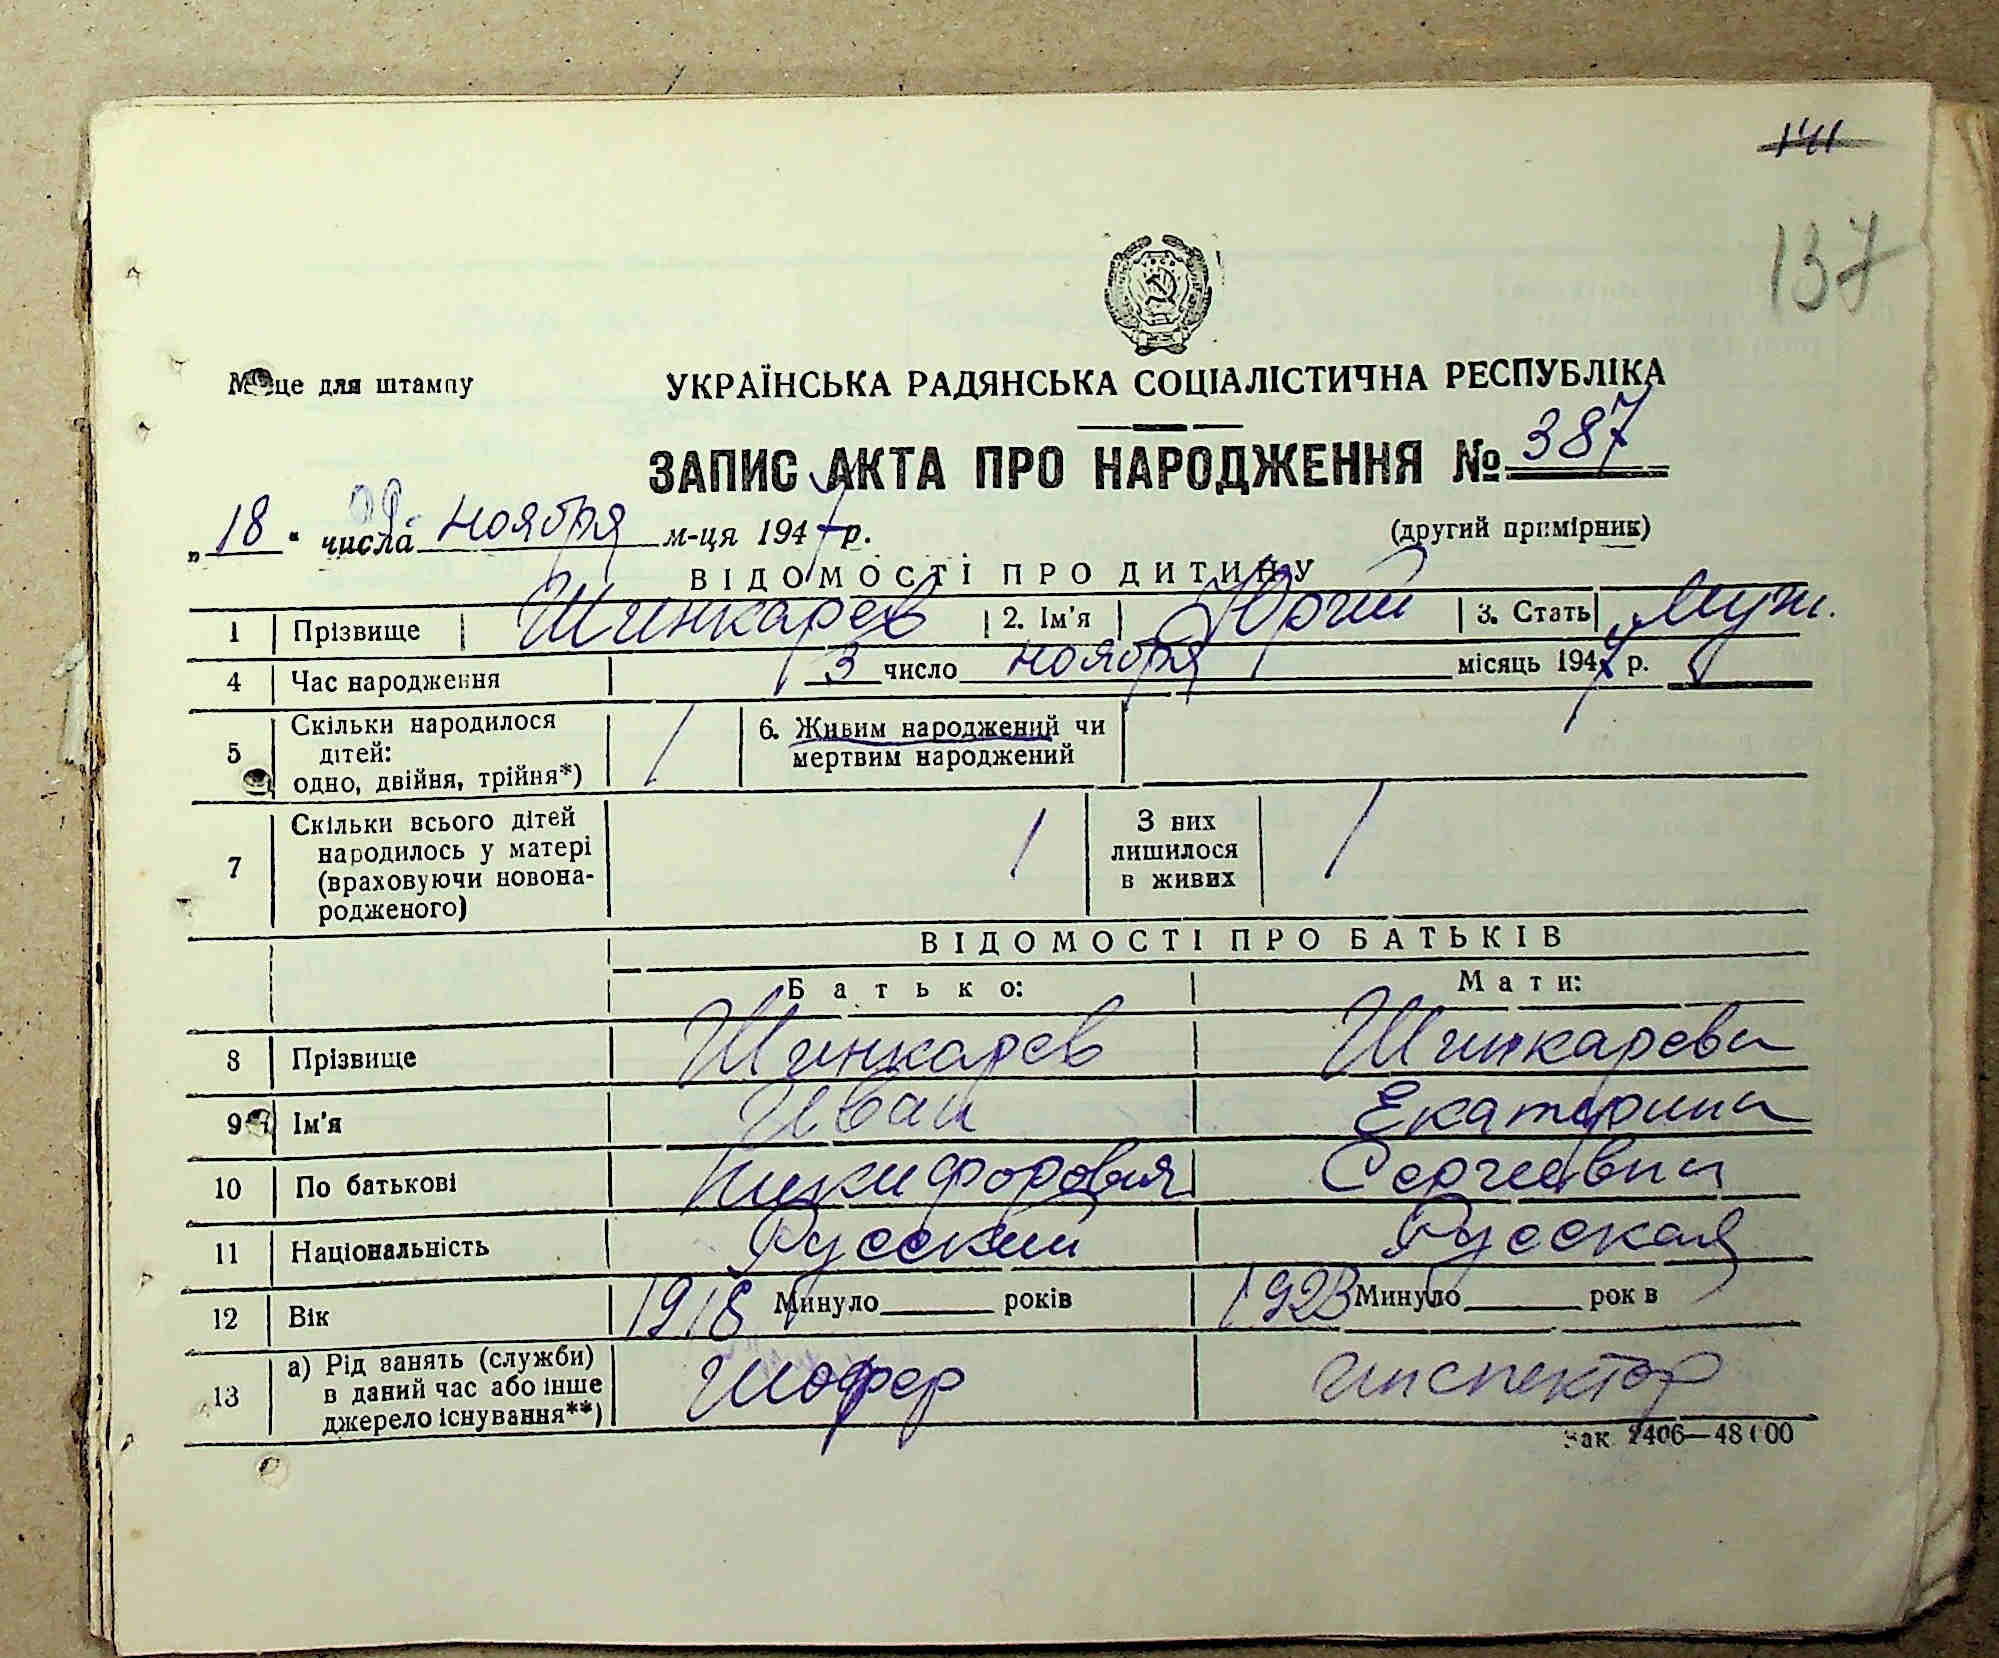 141
137
Місце для штампу
УКРАЇНСЬКА РАДЯНСЬКА СОЦІАЛІСТИЧНА РЕСПУБЛІКА
ЗАПИС АКТА ПРО НАРОДЖЕННЯ № 387
„18“ числа ноября м-ця 1947 р. (другий примірник)
ВІДОМОСТІ ПРО ДИТИНУ
1 Прізвище Шинкарев 2. Ім'я Юрий 3. Стать Муж.
4 Час народження 3 число ноября місяць 1947 р.
5 Скільки народилося дітей: одно, двійня, трійня*) 1 6. Живим народжений чи мертвим народжений
7 Скільки всього дітей народилось у матері (враховуючи новонародженого) 1 З них лишилося в живих 1
ВІДОМОСТІ ПРО БАТЬКІВ
Батько: Мати:
8 Прізвище Шинкарев Шинкарева
9 Ім'я Иван Екатерина
10 По батькові Никифорович Сергеевна
11 Національність Русский Русская
12 Вік 1918 Минуло ___ років 1923 Минуло ___ рок в
13 а) Рід занять (служби) в даний час або інше джерело існування**) Шофер инспектор
Зак 2406—48000